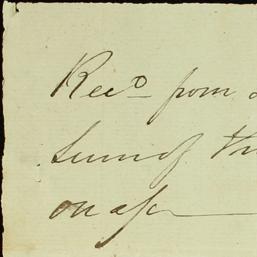 Rec.ᵈ from
Sum of th
on a/c